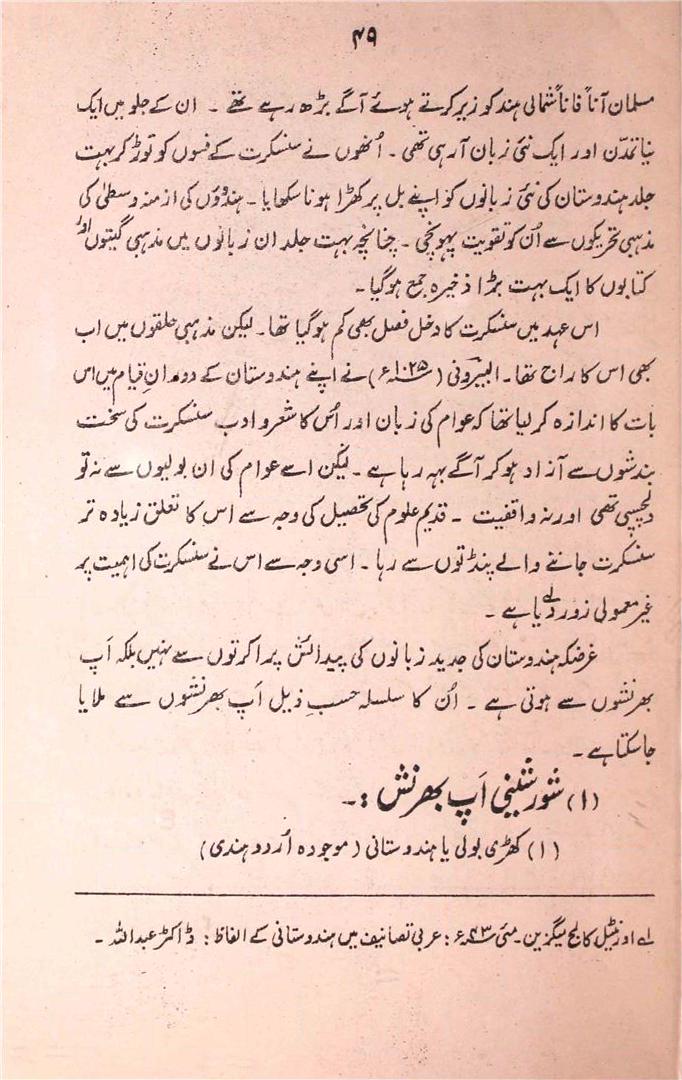 ۴۹
مسلمان آناً فاناً شمالی ہند کو زیر کرتے ہوئے آگے بڑھ رہے تھے ۔ ان کے جلو میں ایک
نیا تمدّن اور ایک نئی زبان آ رہی تھی ۔ اُنھوں نے سنسکرت کے فسوں کو توڑ کر بہت
جلد ہندوستان کی نئی زبانوں کو اپنے بل پر کھڑا ہونا سکھایا ۔ ہندوؤں کی ازمنہ وسطیٰ کی
مذہبی تحریکوں سے اُن کو تقویت پہونچی ۔ چنانچہ بہت جلد ان زبانوں میں مذہبی گیتوں اور
کتابوں کا ایک بہت بڑا ذخیرہ جمع ہو گیا ۔
اس عہد میں سنسکرت کا دخل فصل بھی کم ہو گیا تھا ۔ لیکن مذہبی حلقوں میں اب
بھی اس کا راج تھا ۔ البیرونی (۱۰۲۵ء) نے اپنے ہندوستان کے دورانِ قیام میں اس
بات کا اندازہ کر لیا تھا کہ عوام کی زبان اور اُس کا شعر و ادب سنسکرت کی سخت
بندشوں سے آزاد ہو کر آگے بہہ رہا ہے ۔ لیکن اسے عوام کی ان بولیوں سے نہ تو
دلچسپی تھی اور نہ واقفیت ۔ قدیم علوم کی تحصیل کی وجہ سے اس کا تعلق زیادہ تر
سنسکرت جاننے والے پنڈتوں سے رہا ۔ اسی وجہ سے اس نے سنسکرت کی اہمیت پر
غیر معمولی زور دیا ہے ۔
غرضکہ ہندوستان کی جدید زبانوں کی پیدائش پراکرتوں سے نہیں بلکہ اَپ
بھرنشوں سے ہوتی ہے ۔ اُن کا سلسلہ حسبِ ذیل اَپ بھرنشوں سے ملایا
جا سکتا ہے ۔
(۱) شورشینی اَپ بھرنش :۔
(۱) کھڑی بولی یا ہندوستانی (موجودہ اُردو ہندی)
لے اورنٹیل کالج میگزین ۔ مئی ۴۳ء : عربی تصانیف میں ہندوستانی کے الفاظ : ڈاکٹر عبداللہ ۔